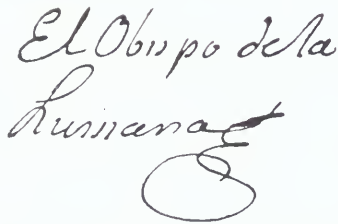 El Obispo de la
Luisiana